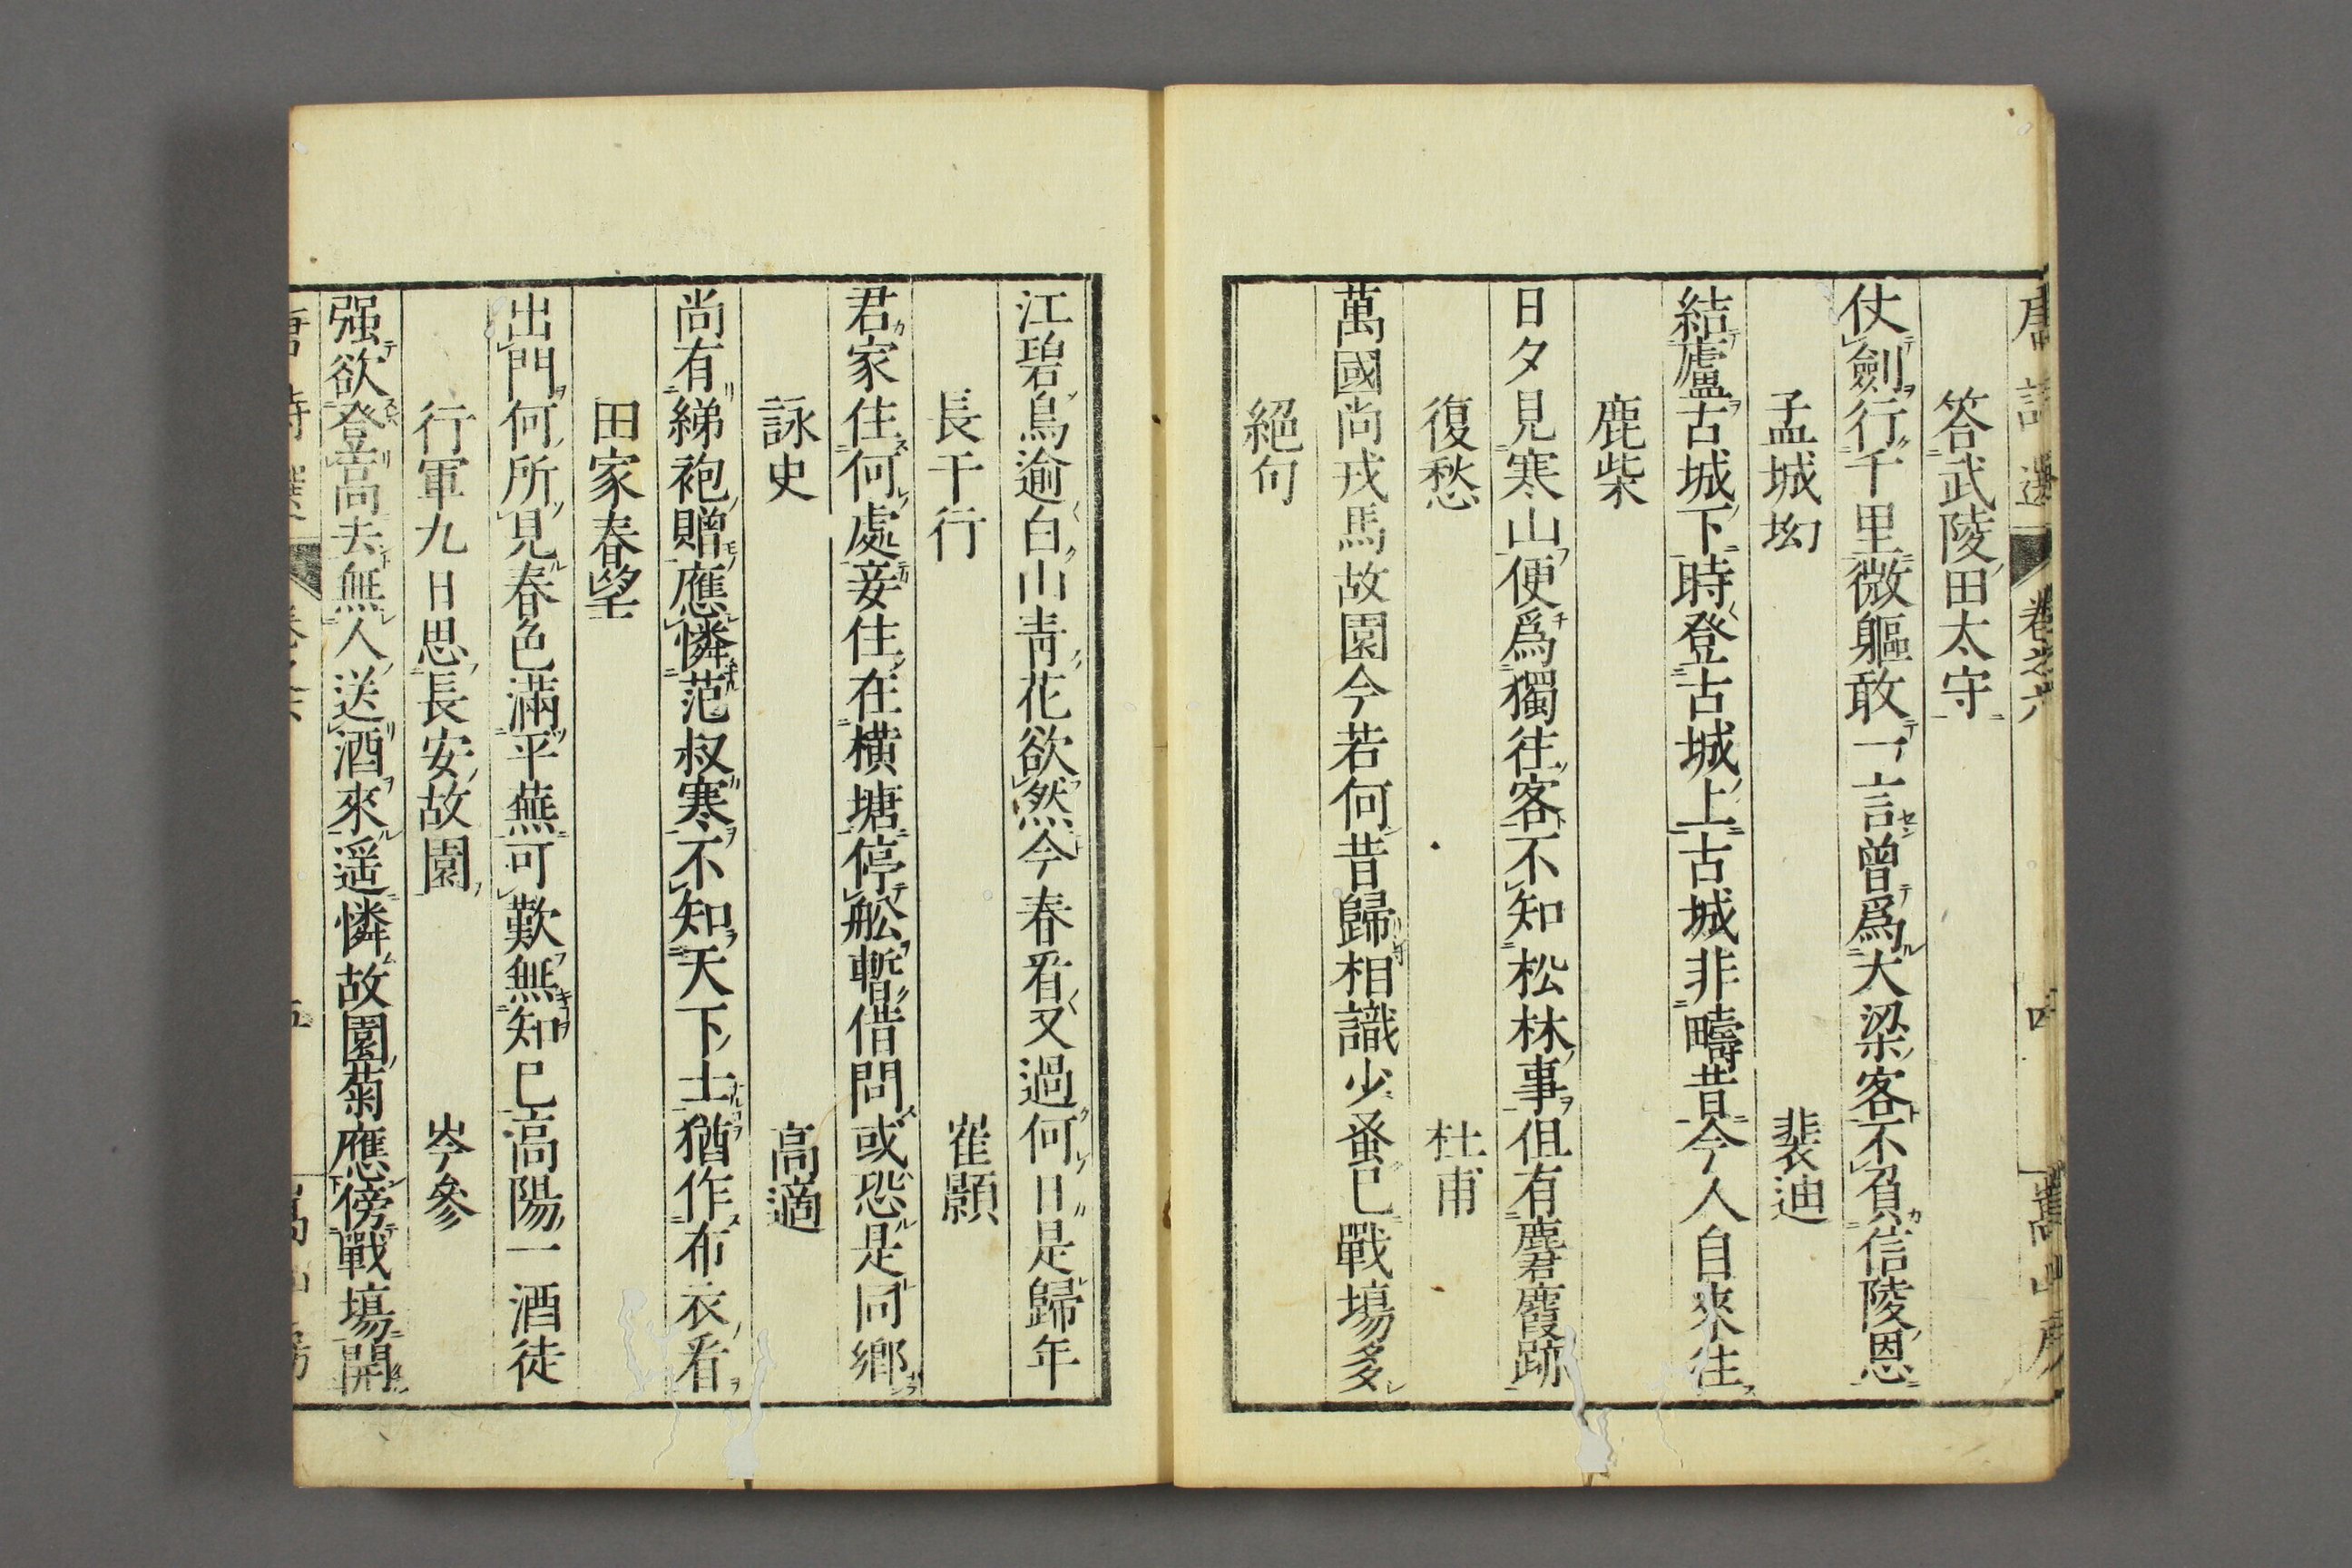 唐詩選 卷之六 四 嵩山房
答武陵田太守
仗劍行千里微軀敢一言曾爲大梁客不負信陵恩
孟城坳 裴迪
結廬古城下時登古城上古城非疇昔今人自來往
鹿柴
日夕見寒山便爲獨往客不知松林事但有麏麚跡
復愁 杜甫
萬國尚戎馬故園今若何昔歸相識少蚤已戰塲多
絕句
江碧鳥逾白山青花欲然今春看又過何日是歸年
長干行 崔顥
君家住何處妾住在橫塘停舩暫借問或恐是同鄉
詠史 高適
尚有綈袍贈應憐范叔寒不知天下士猶作布衣看
田家春望
出門何所見春色滿平蕪可歎無知已高陽一酒徒
行軍九日思長安故園 岑參
强欲登高去無人送酒來遥憐故園菊應傍戰塲開
唐詩選 卷之六 五 嵩山房